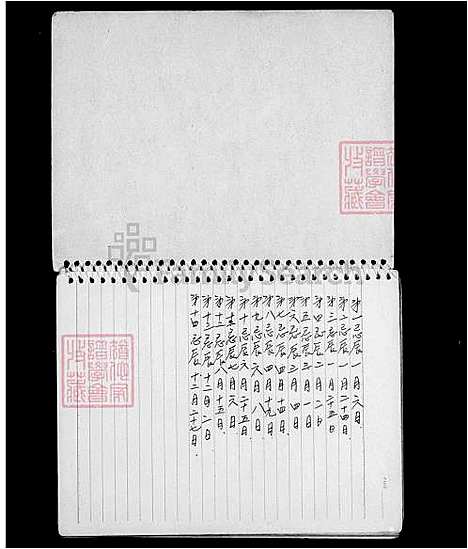 第一忌辰一月六日
第二忌辰一月二十四日
第三忌辰一月二十五日
第四忌辰二月二日
第五忌辰三月一日
第六忌辰三月四日
第七忌辰四月十四日
第八忌辰四月十九日
第九忌辰六月八日
第十忌辰六月二十五日
第十一忌辰七月六日
第十二忌辰八月十五日
第十三忌辰十二月二日
第十四忌辰十二月二十七日
FamilySearch
譜學會
收藏
譜學會
收藏